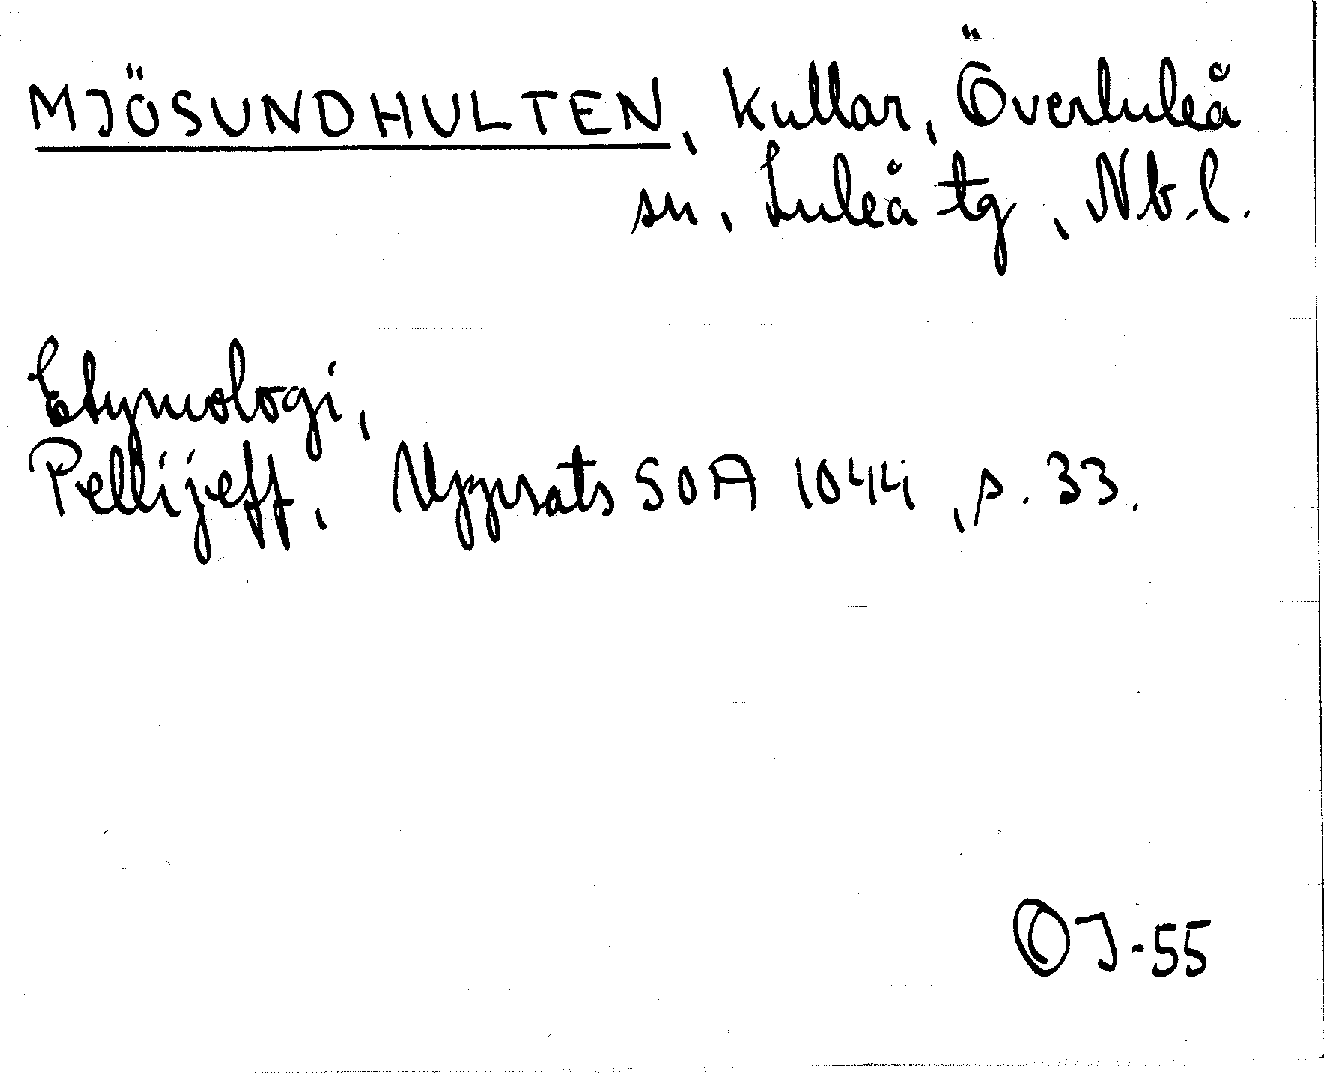 MJÖSUNDHULTEN, kullar, Överluleå
sn, Luleå tg, Nb.l.
Etymologi,
Pellijeff, Uppsats SOA 1044, s. 33.
OJ-55